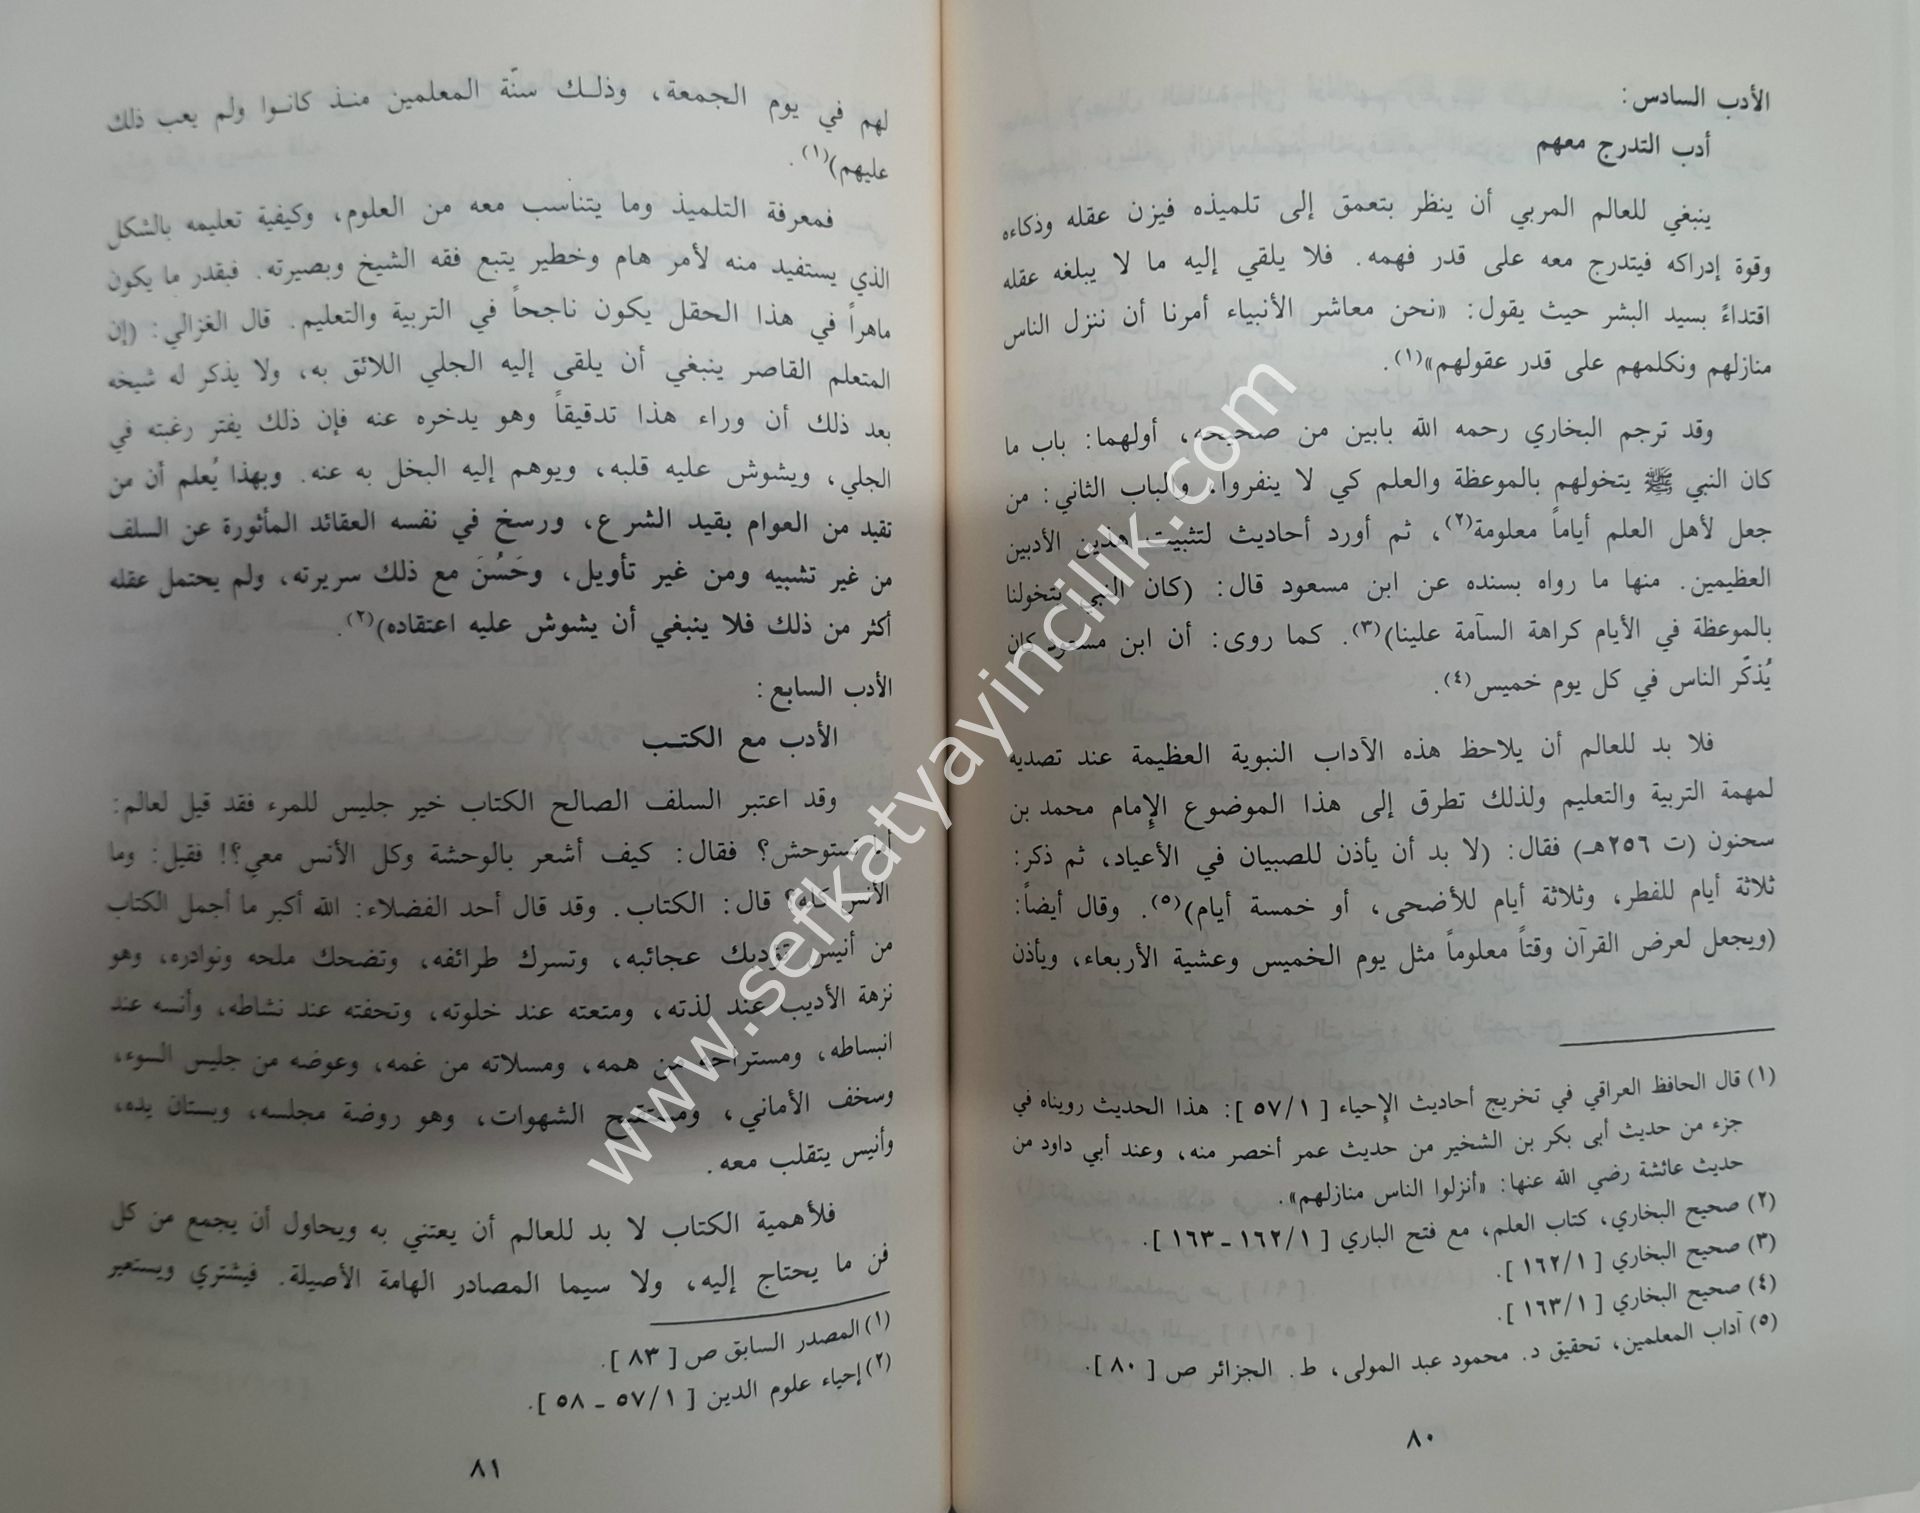 الأدب السادس:
أدب التدرج معهم
ينبغي للعالم المربي أن ينظر بتعمق إلى تلميذه فيزن عقله وذكاءه
وقوة إدراكه فيتدرج معه على قدر فهمه. فلا يلقي إليه ما لا يبلغه عقله
اقتداءً بسيد البشر حيث يقول: «نحن معاشر الأنبياء أمرنا أن ننزل الناس
منازلهم ونكلمهم على قدر عقولهم»(١).
وقد ترجم البخاري رحمه الله بابين من صحيحه، أولهما: باب ما
كان النبي ﷺ يتخولهم بالموعظة والعلم كي لا ينفروا، والباب الثاني: من
جعل لأهل العلم أياماً معلومة(٢)، ثم أورد أحاديث لتثبيت هذين الأدبين
العظيمين. منها ما رواه بسنده عن ابن مسعود قال: (كان النبي يتخولنا
بالموعظة في الأيام كراهة السآمة علينا)(٣). كما روى: أن ابن مسعود كان
يُذكّر الناس في كل يوم خميس(٤).
فلا بد للعالم أن يلاحظ هذه الآداب النبوية العظيمة عند تصديه
لمهمة التربية والتعليم ولذلك تطرق إلى هذا الموضوع الإمام محمد بن
سحنون (ت ٢٥٦هـ) فقال: (لا بد أن يأذن للصبيان في الأعياد، ثم ذكر:
ثلاثة أيام للفطر، وثلاثة أيام للأضحى، أو خمسة أيام)(٥). وقال أيضاً:
(ويجعل لعرض القرآن وقتاً معلوماً مثل يوم الخميس وعشية الأربعاء، ويأذن
(١) قال الحافظ العراقي في تخريج أحاديث الإحياء [ ١/ ٥٧ ]: هذا الحديث رويناه في
جزء من حديث أبى بكر بن الشخير من حديث عمر أخصر منه، وعند أبي داود من
حديث عائشة رضي الله عنها: «أنزلوا الناس منازلهم».
(٢) صحيح البخاري، كتاب العلم، مع فتح الباري [ ١/ ١٦٢ ـ ١٦٣ ].
(٣) صحيح البخاري [ ١/ ١٦٢ ].
(٤) صحيح البخاري [ ١/ ١٦٣ ].
(٥) آداب المعلمين، تحقيق د. محمود عبد المولى، ط. الجزائر ص [ ٨٠ ].
٨٠
لهم في يوم الجمعة، وذلـك سنّة المعلمين منـذ كانـوا ولم يعب ذلك
عليهم)(١).
فمعرفة التلميذ وما يتناسب معه من العلوم، وكيفية تعليمه بالشكل
الذي يستفيد منه لأمر هام وخطير يتبع فقه الشيخ وبصيرته. فبقدر ما يكون
ماهراً في هذا الحقل يكون ناجحاً في التربية والتعليم. قال الغزالي: (إن
المتعلم القاصر ينبغي أن يلقى إليه الجلي اللائق به، ولا يذكر له شيخه
بعد ذلك أن وراء هذا تدقيقاً وهو يدخره عنه فإن ذلك يفتر رغبته في
الجلي، ويشوش عليه قلبه، ويوهم إليه البخل به عنه. وبهذا يُعلم أن من
تقيد من العوام بقيد الشرع، ورسخ في نفسه العقائد المأثورة عن السلف
من غير تشبيه ومن غير تأويل، وحَسُنَ مع ذلك سريرته، ولم يحتمل عقله
أكثر من ذلك فلا ينبغي أن يشوش عليه اعتقاده)(٢).
الأدب السابع:
الأدب مع الكتـب
وقد اعتبر السلف الصالح الكتاب خير جليس للمرء فقد قيل لعالم:
تستوحش؟ فقال: كيف أشعر بالوحشة وكل الأنس معي؟! فقيل: وما
الأنس كله؟ قال: الكتاب. وقد قال أحد الفضلاء: الله أكبر ما أجمل الكتاب
من أنيس عجائبه، وتسرك طرائفه، وتضحك ملحه ونوادره، وهو
نزهة الأديب عند لذته، ومتعته عند خلوته، وتحفته عند نشاطه، وأنسه عند
انبساطه، ومستراحه من همه، ومسلاته من غمه، وعوضه من جليس السوء،
وسخف الأماني، ومستقبح الشهوات، وهو روضة مجلسه، وبستان يده،
وأنيس يتقلب معه.
فلأهمية الكتاب لا بد للعالم أن يعتني به ويحاول أن يجمع من كل
فن ما يحتاج إليه، ولا سيما المصادر الهامة الأصيلة. فيشتري ويستعير
(١) المصدر السابق ص [ ٨٣ ].
(٢) إحياء علوم الدين [ ١/ ٥٧ ـ ٥٨ ].
٨١
www.sefkatyayincilik.com